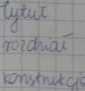 tytuł
rozdział
konstrukcja